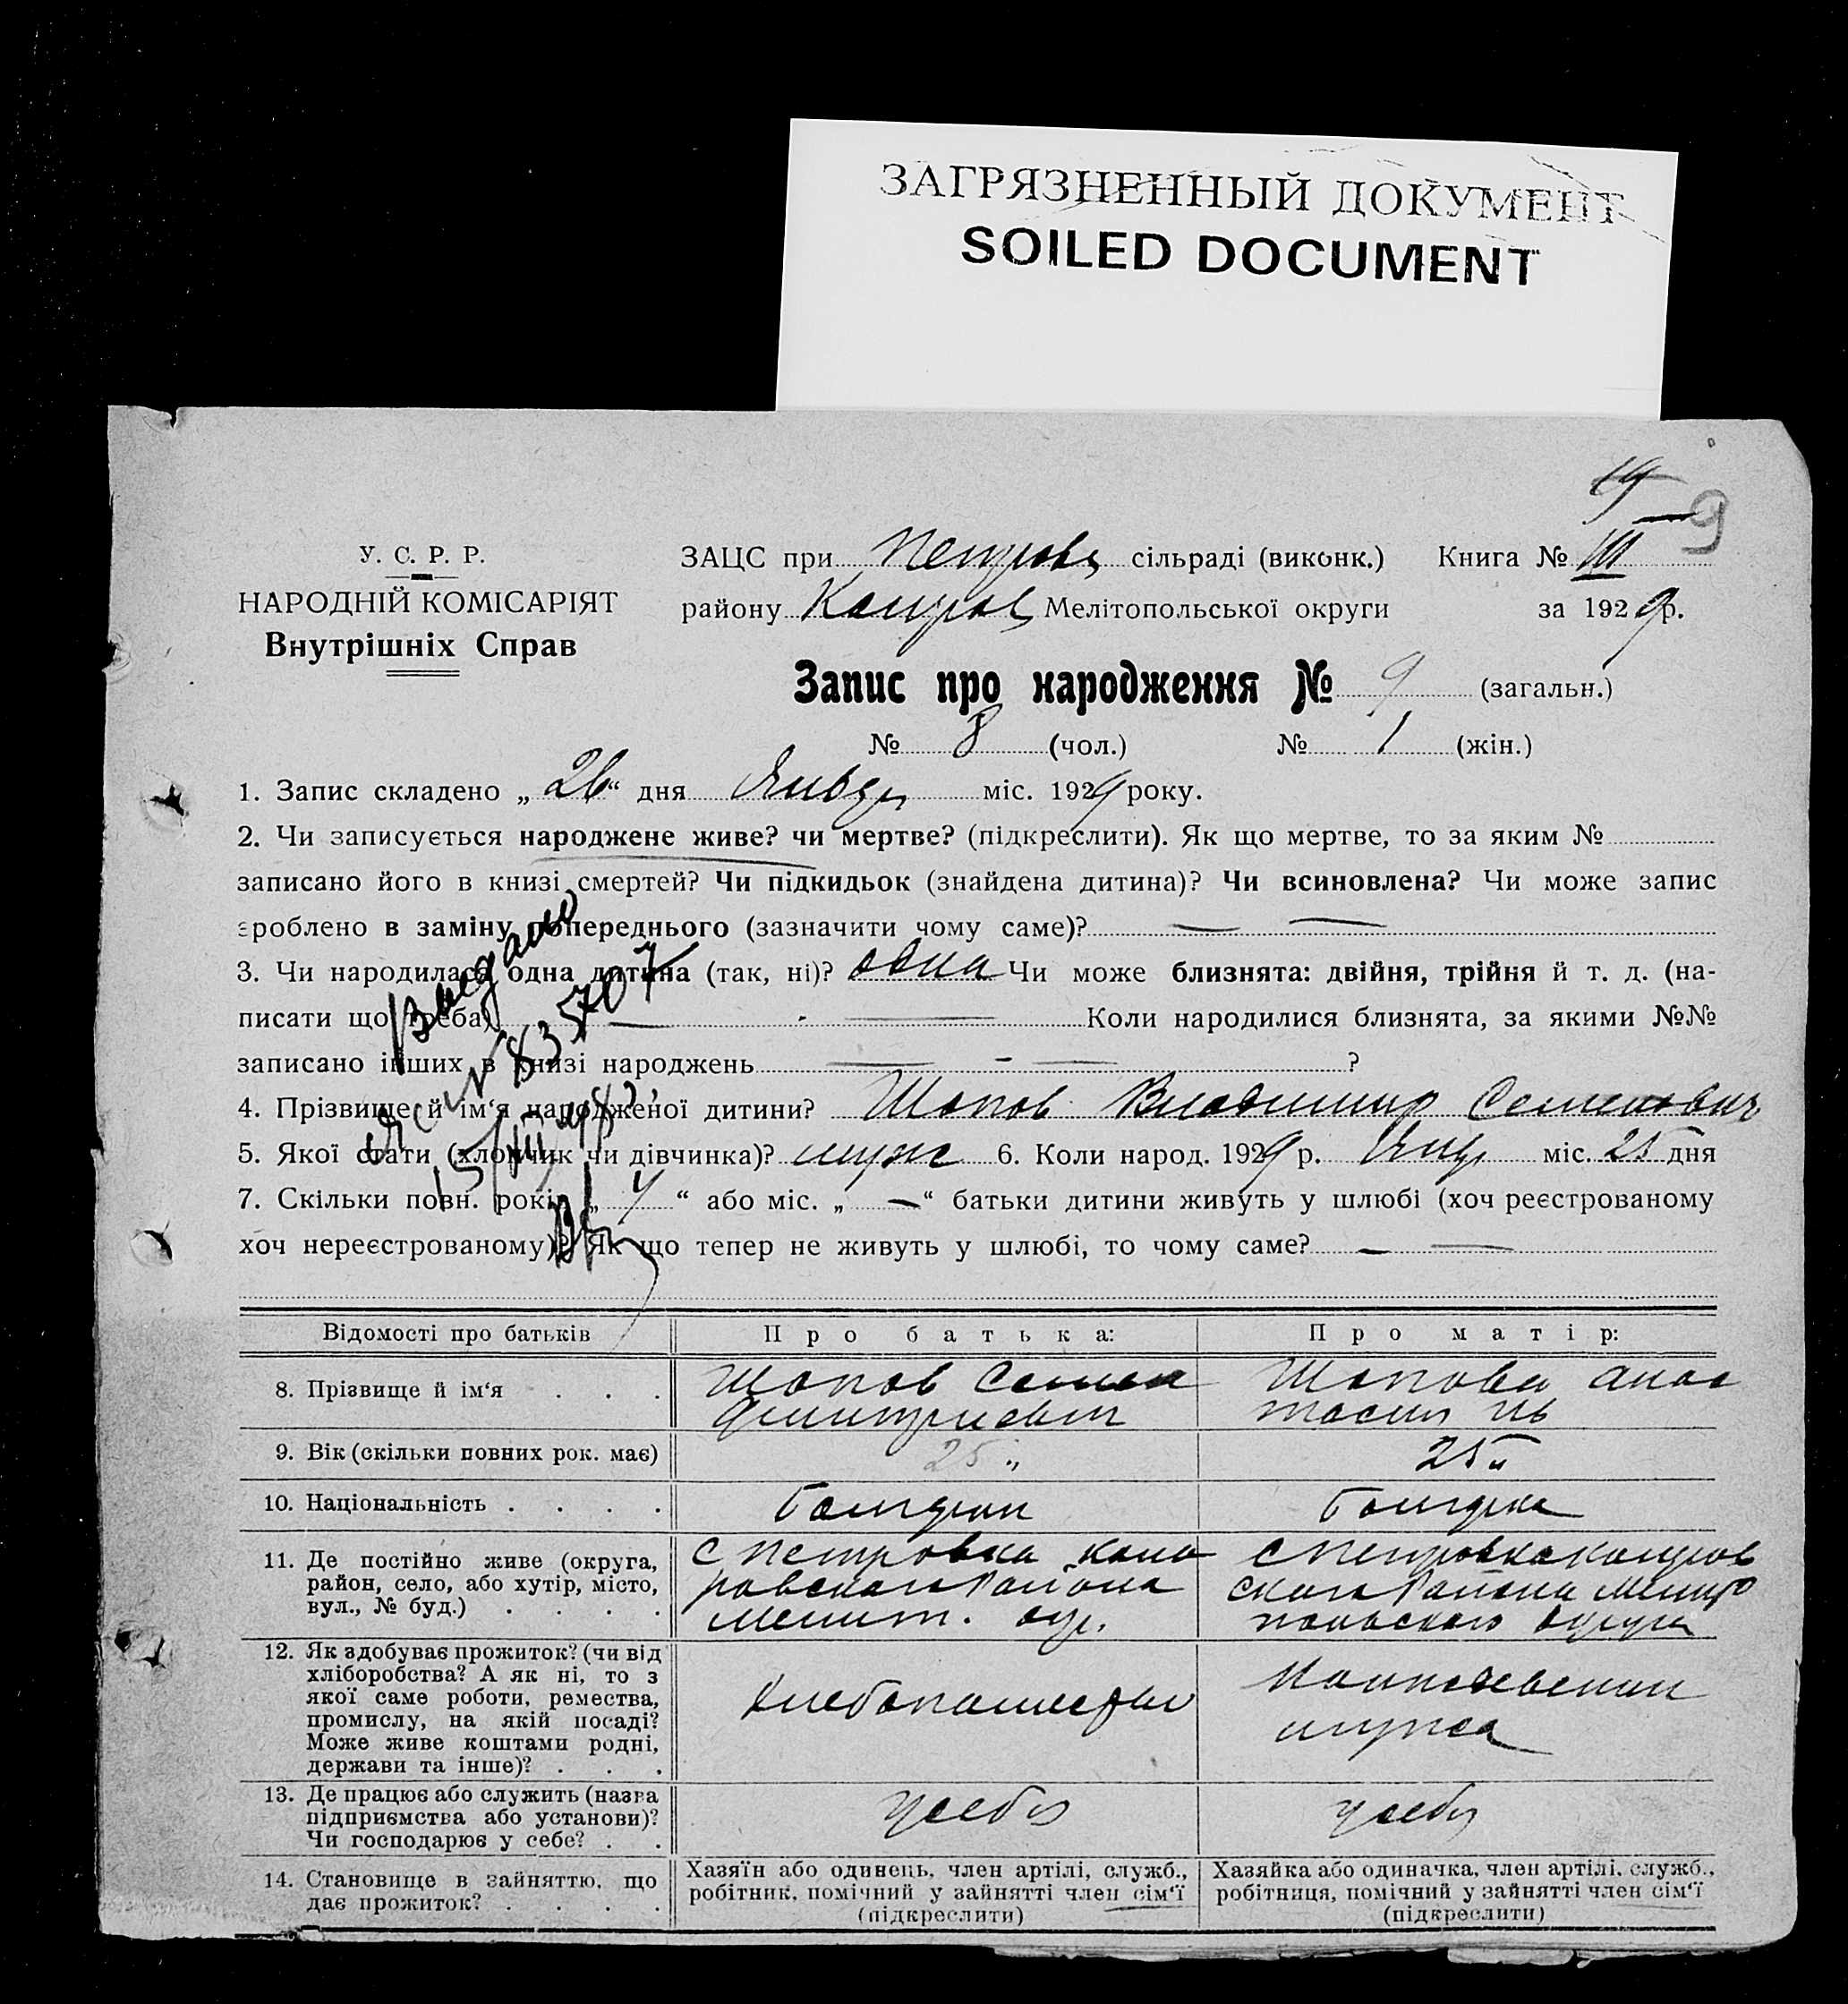 ЗАГРЯЗНЕННЫЙ ДОКУМЕНТ
SOILED DOCUMENT
19
9
У. С. Р. Р.
НАРОДНІЙ КОМІСАРІЯТ
Внутрішніх Справ
ЗАЦС при Петров сільраді (виконк.) Книга № III
району Мелітопольської округи за 1929 р.
Запис про народження № 9 (загальн.)
№ 8 (чол.) № 1 (жін.)
1. Запис складено „26“ дня Январ міс. 1929 року.
2. Чи записується народжене живе? чи мертве? (підкреслити). Як що мертве, то за яким №
записано його в книзі смертей? Чи підкидьок (знайдена дитина)? Чи всиновлена? Чи може запис
зроблено в заміну попереднього (зазначити чому саме)? — —
3. Чи народилася одна дитина (так, ні)? одна Чи може близнята: двійня, трійня й т. д. (на-
писати що треба) — — Коли народилися близнята, за якими №№
записано інших в книзі народжень — - — ?
4. Прізвище й ім‘я народженої дитини? Шопов Владимир Семенович
5. Якої стати (хлопчик чи дівчинка)? муж 6. Коли народ. 1929 р. Янв міс. 25 дня
7. Скільки повн. років „4“ або міс. „—“ батьки дитини живуть у шлюбі (хоч реєстрованому
хоч нереєстрованому)? Як що тепер не живуть у шлюбі, то чому саме? — —
Выдано
№ 835707
15/III 48
Відомості про батьків Про батька: Про матір:
8. Прізвище й ім‘я . . . Шопов Семен Шопова Анас
Дмитриевич тасия Ив
9. Вік (скільки повних рок. має) 25 „ 25 „
10. Національність . . . . болгарин болгарка
11. Де постійно живе (округа, с Петровка с Петровка
район, село, або хутір, місто, района района
вул., № буд.) . . . . Мелит. окр. польского округа
12. Як здобуває прожиток? (чи від
хліборобства? А як ні, то з
якої саме роботи, ремества,
промислу, на якій посаді? хлебопашеством
Може живе коштами родні, мужа
держави та інше)? . . .
13. Де працює або служить (назва
підприємства або установи)? у себя у себя
Чи господарює у себе? . .
14. Становище в зайняттю, що Хазяїн або одинець, член артілі, служб., Хазяйка або одиначка, член артілі, служб.,
дає прожиток? . . . . робітник, помічний у зайнятті член сім‘ї робітниця, помічний у зайнятті член сім‘ї
(підкреслити) (підкреслити)